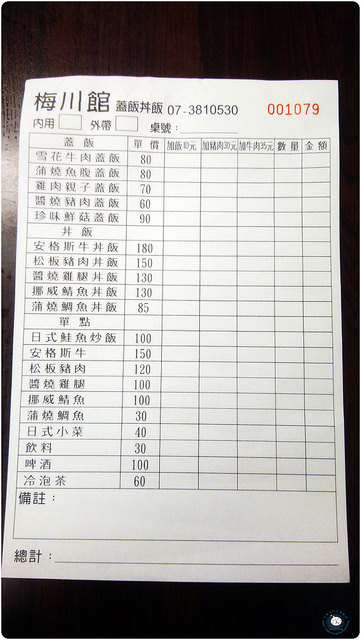 梅川館 蓋飯丼飯 07-3810530 001079
內用 外帶 桌號：
蓋飯 單價 加飯10元 加豬肉30元 加牛肉35元 數量 金額
雪花牛肉蓋飯 80
蒲燒魚腹蓋飯 80
雞肉親子蓋飯 70
醬燒豬肉蓋飯 60
珍味鮮菇蓋飯 90
丼飯
安格斯牛丼飯 180
松板豬肉丼飯 150
醬燒雞腿丼飯 130
挪威鯖魚丼飯 130
蒲燒鯛魚丼飯 85
單點
日式鮭魚炒飯 100
安格斯牛 150
松板豬肉 120
醬燒雞腿 100
挪威鯖魚 100
蒲燒鯛魚 30
日式小菜 40
飲料 30
啤酒 100
冷泡茶 60
備註：
總計：